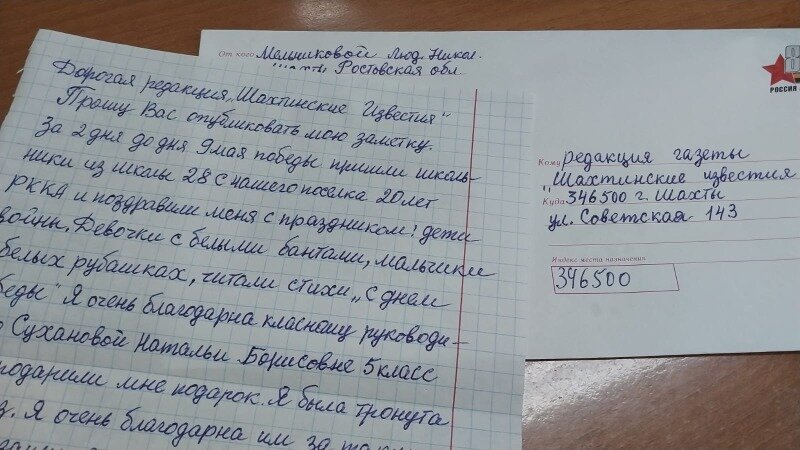 От кого Мельниковой Люд. Никол.
Шахты Ростовская обл.
РОССИЯ
Дорогая редакция „Шахтинские Известия"
Прошу Вас опубликовать мою заметку.
За 2 дня до дня 9 мая победы пришли школь-
ники из школы 28 с нашего поселка 20 лет
РККА и поздравили меня с праздником! дети
войны. Девочки с белыми бантами, мальчики
белых рубашках, читали стихи „С днем
беды" Я очень благодарна класному руководи-
Сухановой Наталье Борисовне 5 класс
подарили мне подарок. Я была тронута
з. Я очень благодарна им за
Кому редакция газеты
„Шахтинские известия
Куда 346500 г. Шахты
ул. Советская 143
Индекс места назначения
346500